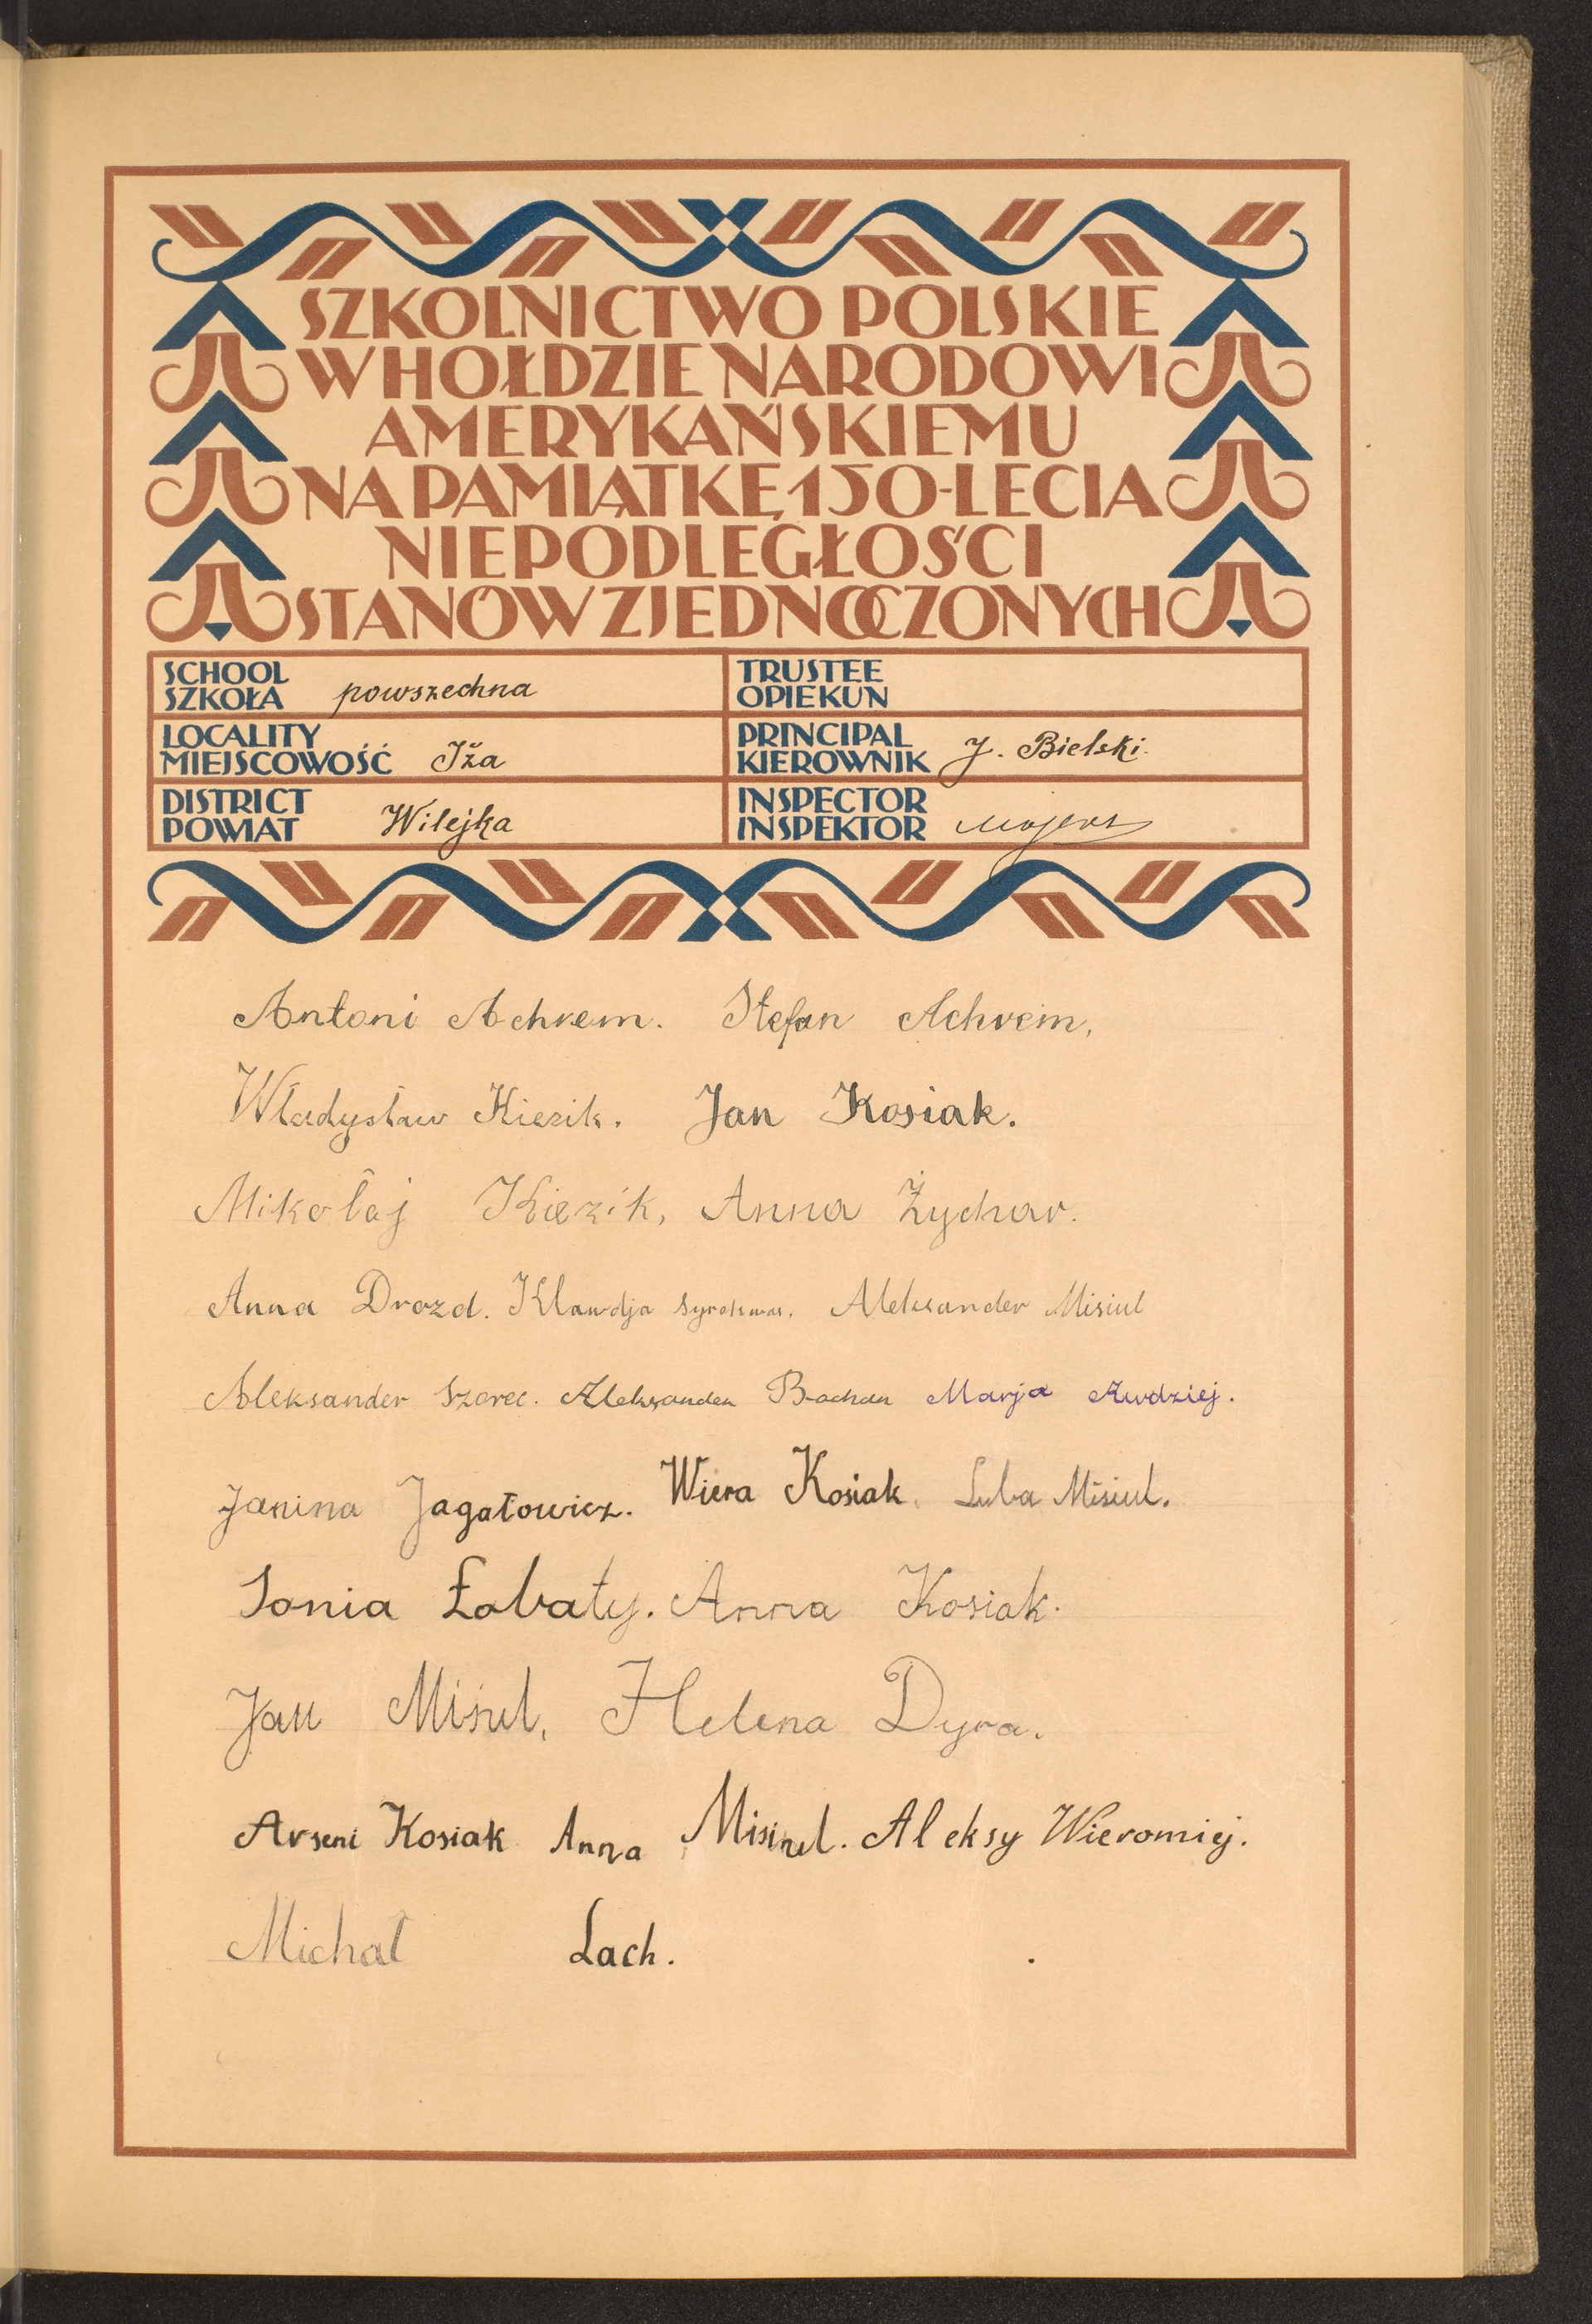 SZKOLNICTWO POLSKIE
W HOŁDZIE NARODOWI
AMERYKAŃSKIEMU
NA PAMIĄTKĘ 150-LECIA
NIEPODLEGŁOŚCI
STANÓW ZJEDNOCZONYCH
SCHOOL
SZKOŁA powszechna
TRUSTEE
OPIEKUN
LOCALITY
MIEJSCOWOŚĆ Iża
PRINCIPAL
KIEROWNIK J. Bielski.
DISTRICT
POWIAT Wilejka
INSPECTOR
INSPEKTOR
Antoni Achrem. Stefan Achrem,
Władysław Kiezik. Jan Kosiak.
Mikołaj Kiezik, Anna Żychar.
Anna Drozd. Klawdja Aleksander Misiul
Aleksander Szarec. Aleksander Bachar Marja Awdziej.
Janina Jagałowicz. Wiera Kosiak. Luba Misiul.
Sonia Łobaty. Anna Kosiak.
Jan Misiul, Helena Dyra.
Arseni Kosiak Anna Misiul. Aleksy Wieromiej.
Michał Lach.